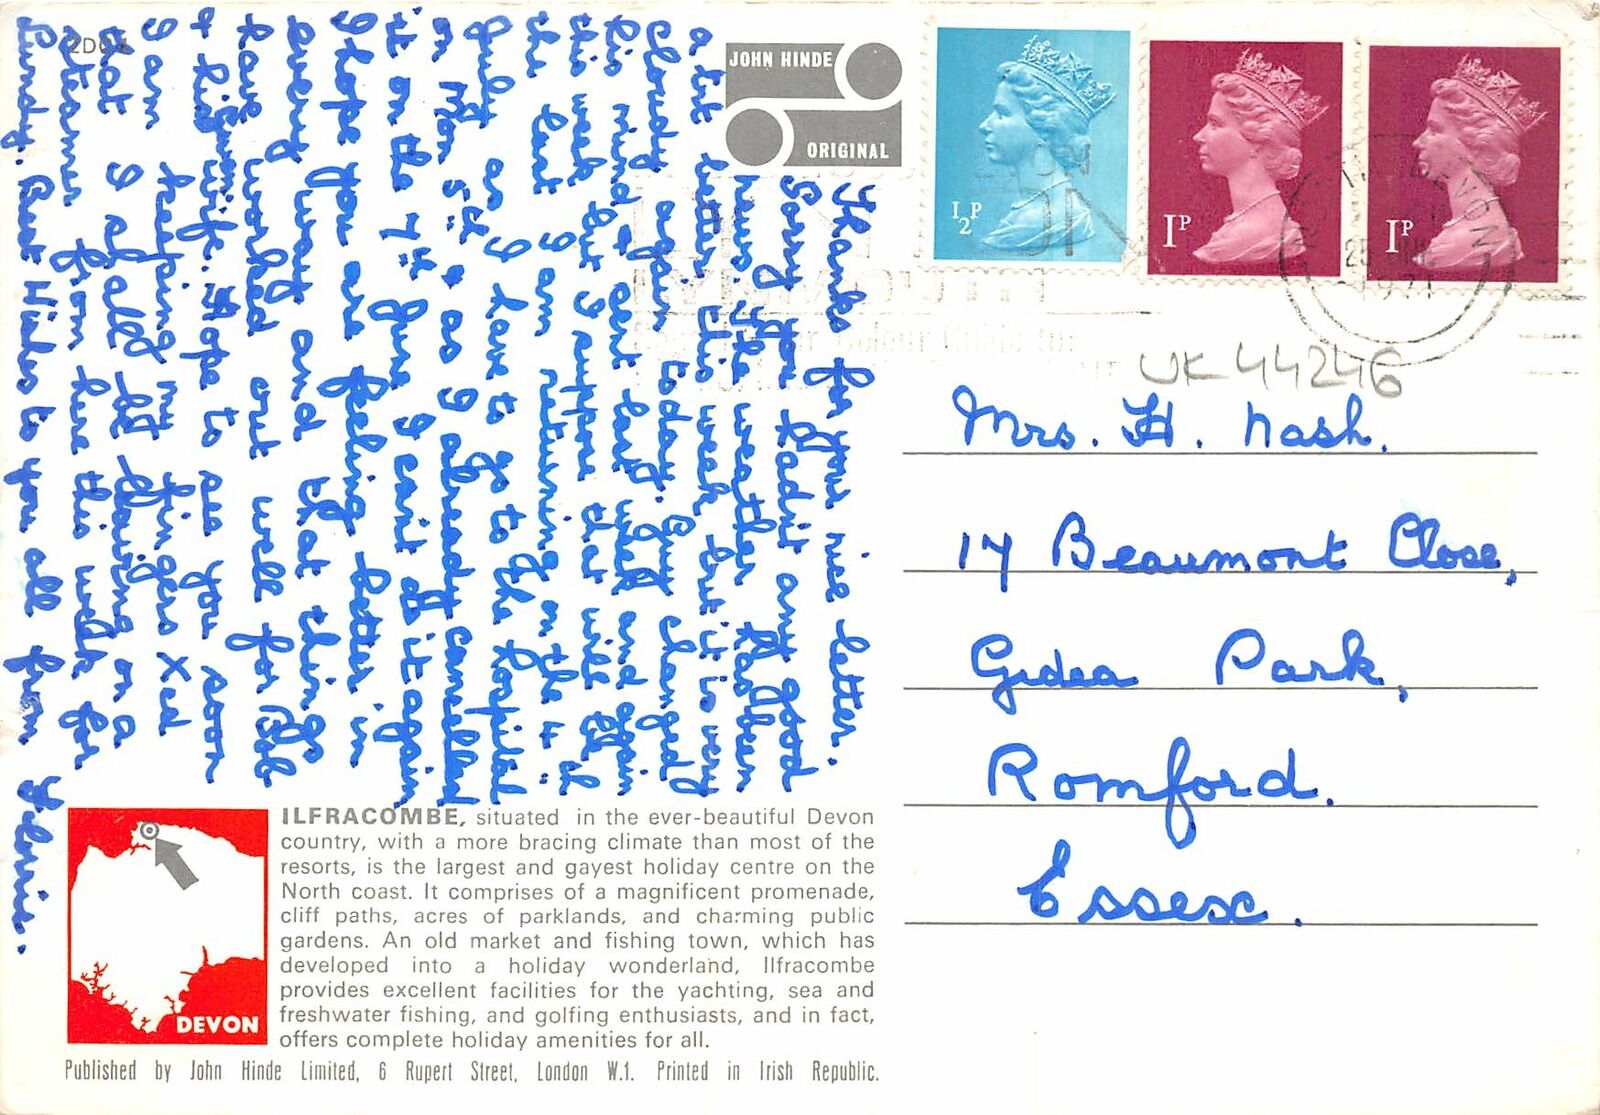 Thanks for your nice letter.
Sorry you hadn't any good
news. The weather has been
a bit better this week but it is very
cloudy again today. Guy changed
his mind & sent last week and again
this week but I suppose that will be
the last I am returning on the 4th
July as I have to go to the hospital
on Mon 5th & as I already cancelled
it on the 7th June I can't do it again
I hope you are feeling better in
every way and that things
have worked out well for Bob
& his wife. Hope to see you soon
I am keeping my fingers Xed
that I shall be
steamer from here this week for
Lundy. Best Wishes to you all from
JOHN HINDE
ORIGINAL
½P
1P
1P
DEVON
25
1971
UK 44246
Mrs. H. Nash.
17 Beaumont Close,
Gidea Park,
Romford.
Essex.
DEVON
ILFRACOMBE, situated in the ever-beautiful Devon
country, with a more bracing climate than most of the
resorts, is the largest and gayest holiday centre on the
North coast. It comprises of a magnificent promenade,
cliff paths, acres of parklands, and charming public
gardens. An old market and fishing town, which has
developed into a holiday wonderland, Ilfracombe
provides excellent facilities for the yachting, sea and
freshwater fishing, and golfing enthusiasts, and in fact,
offers complete holiday amenities for all.
Published by John Hinde Limited, 6 Rupert Street, London W.1. Printed in Irish Republic.